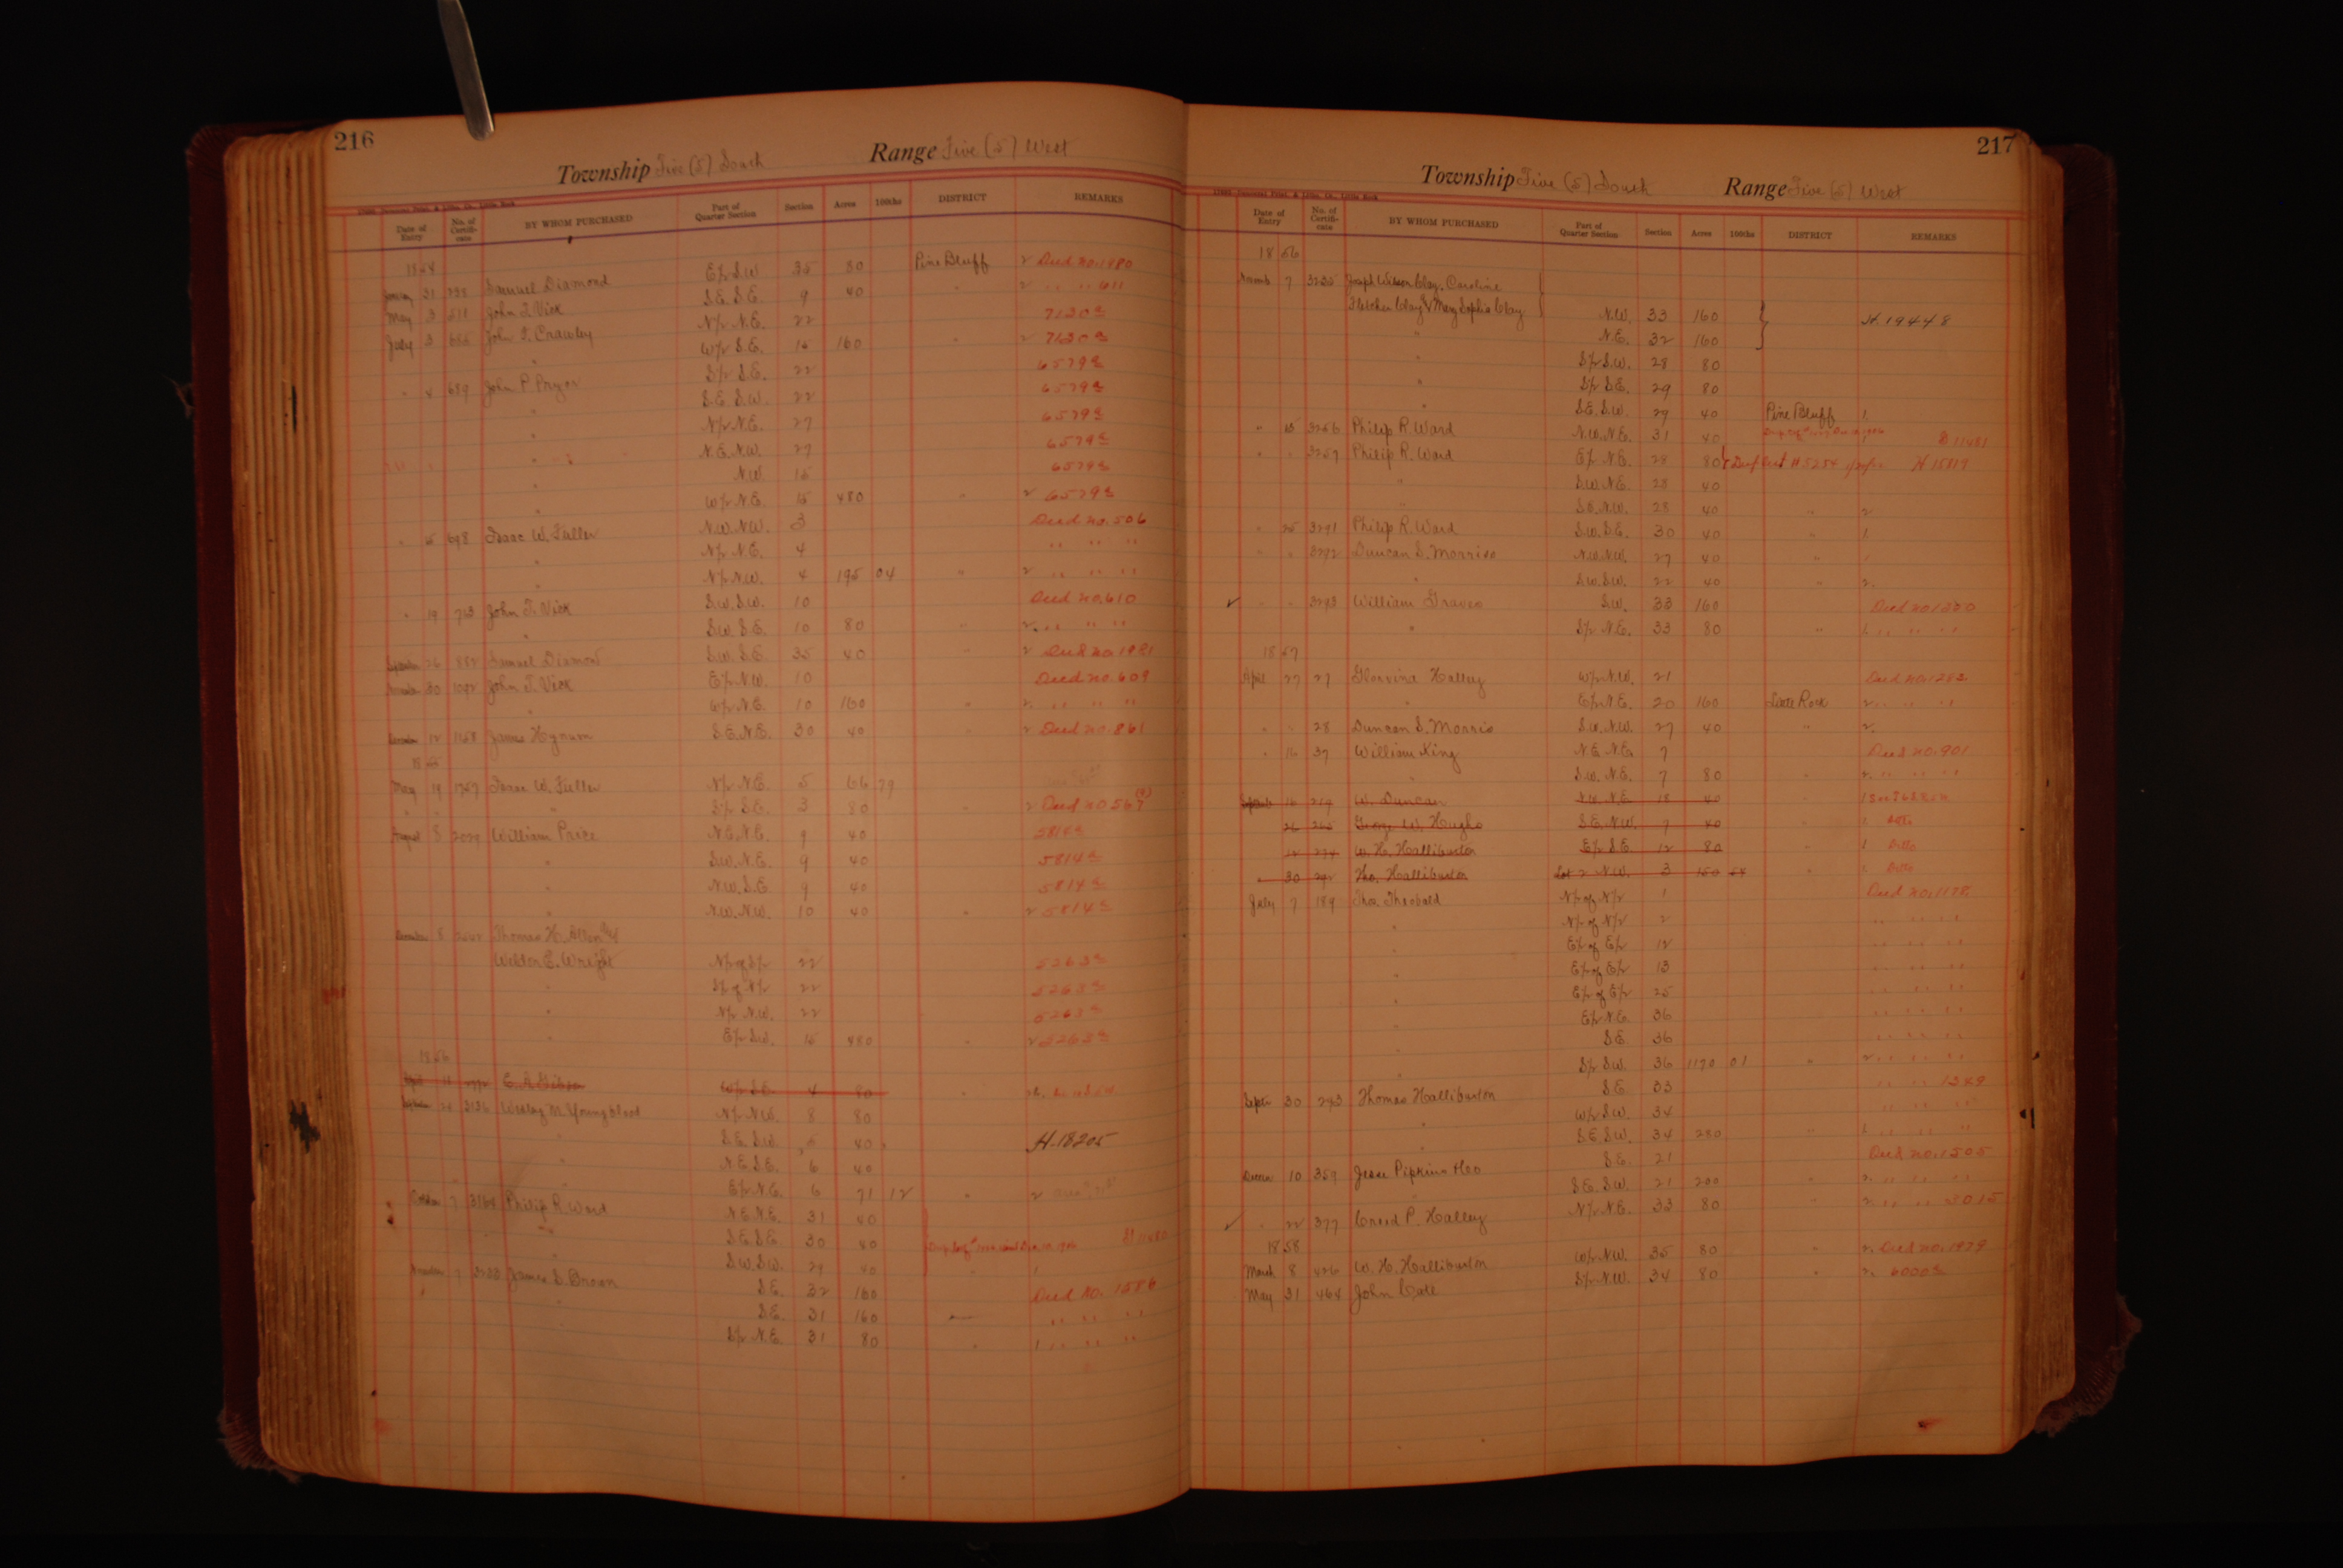 216
Township Five (5) South Range Five (5) West
Date of Entry No. of Certifi-cate BY WHOM PURCHASED Part of Quarter Section Section Acres 100ths DISTRICT REMARKS
1854
31 Samuel Diamond E/2 S.W. 35 80 Pine Bluff 2 Deed no. 1980
May 3 511 John T. Vick S.E. S.E. 9 40 " 2 " " 611
July 3 685 John T. Crawley N/2 N.E. 22 7130
" W/2 S.E. 15 160 " 2 7130
" 4 689 John P. Pryor S/2 S.E. 22 6579
" S.E. S.W. 22 6579
" N/2 N.E. 27 6579
" N.E. N.W. 27 6579
" N.W. 15 6579
" W/2 N.E. 15 480 " 2 6579
" 5 698 Isaac W. Fuller N.W. N.W. 3 Deed no. 506
" N/2 N.E. 4 " " "
" N/2 N.W. 4 195 04 " 2 " " "
" 19 John T. Vick S.W. S.W. 10 Deed no. 610
" S.W. S.E. 10 80 " 2 " " "
September 26 Samuel Diamond S.W. S.E. 35 40 " 2 Deed no. 1981
November 30 John T. Vick E/2 N.W. 10 Deed no. 609
" W/2 N.E. 10 160 " 2 " " "
December 12 James Hynum S.E. N.E. 30 40 " 2 Deed no. 861
1855
May 19 Isaac W. Fuller N/2 N.E. 5 66 79
" S/2 S.E. 3 80 " 2 Deed no 567
August 8 2029 William Price N.E. N.E. 9 40 5814
" S.W. N.E. 9 40 5814
" N.W. S.E. 9 40 5814
" N.W. N.W. 10 40 " 2 5814
December 8 Thomas H. Allen and
Weldon E. Wright N/2 of S/2 22 5263
" S/2 of N/2 22 5263
" N/2 N.W. 22 5263
" E/2 S.W. 15 480 " 2 5263
1856
W/2 S.E. 4 80
3136 Wesley M. Youngblood N/2 N.W. 8 80
" S.E. S.W. 40 H-18205
" N.E. S.E. 6 40
" E/2 N.E. 6 71 12 " 2
October 7 3164 Philip R. Ward N.E. N.E. 31 40
" S.E. S.E. 30 40
" S.W. S.W. 29 40
November 7 James S. Brown S.E. 32 160 Deed no. 1586
" S.E. 31 160 " " "
" S/2 N.E. 31 80 " 1 " " "
217
Township Five (5) South Range Five (5) West
Date of Entry No. of Certifi-cate BY WHOM PURCHASED Part of Quarter Section Section Acres 100ths DISTRICT REMARKS
1856
Novemb 7 3235 Joseph Wilson Clay, Caroline
Fletcher Clay & Mary Sophia Clay N.W. 33 160 H. 19448
" N.E. 32 160
" S/2 S.W. 28 80
" S/2 S.E. 29 80
" S.E. S.W. 29 40 Pine Bluff 1.
" 15 3256 Philip R. Ward N.W. N.E. 31 40 11481
" " 3257 Philip R. Ward E/2 N.E. 28 80 H 15819
" S.W. N.E. 28 40
" S.E. N.W. 28 40 " 2.
" 25 3291 Philip R. Ward S.W. S.E. 30 40 " 1.
" " 3292 Duncan S. Morriss N.W. N.W. 27 40 " 1
" S.W. S.W. 22 40 " 2.
" " 3293 William Graves S.W. 33 160
" S/2 N.E. 33 80 " 1. " " "
1857
April 27 27 Glorvina Halley W/2 N.W. 21 Deed no. 1252
" E/2 N.E. 20 160 Little Rock 2 " " "
" " 28 Duncan S. Morris S.W. N.W. 27 40 " 2.
" 16 37 William King N.E. N.E. 7 Deed no. 901
" S.W. N.E. 7 80 " 2. " " "
September 16 219 W. Duncan N.W. N.E. 18 40
26 George W. Hughs S.E. N.W. 7 40 " 1. ditto
W. H. Halliburton E/2 S.E. 12 80 " 1 ditto
" 30 Tho. Halliburton Lot 2 N.W. 3 " ditto
July 7 189 Thos. Theobald N/2 of N/2 1 Deed no. 1178
" N/2 of N/2 2 " " "
E/2 of E/2 12 " " "
" E/2 of E/2 13 " " "
" E/2 of E/2 25 " " "
" E/2 N.E. 36 " " "
S.E. 36 " " "
" S/2 S.W. 36 1170 01 " 2 " " "
Septr 30 243 Thomas Halliburton S.E. 33 " " 1249
" W/2 S.W. 34 " " "
" S.E. S.W. 34 280 " 1. " " "
Decem 10 359 Jesse Pipkins Heo S.E. 21 Deed no. 1505
" S.E. S.W. 21 200 " 2. " " "
" 22 377 Creed P. Halley N/2 N.E. 33 80 " 2. " " 3015
1858
March 8 426 W. H. Halliburton W/2 N.W. 35 80 " 2. Deed no. 1979
May 31 464 John Cate S/2 N.W. 34 80 " 2. 6000